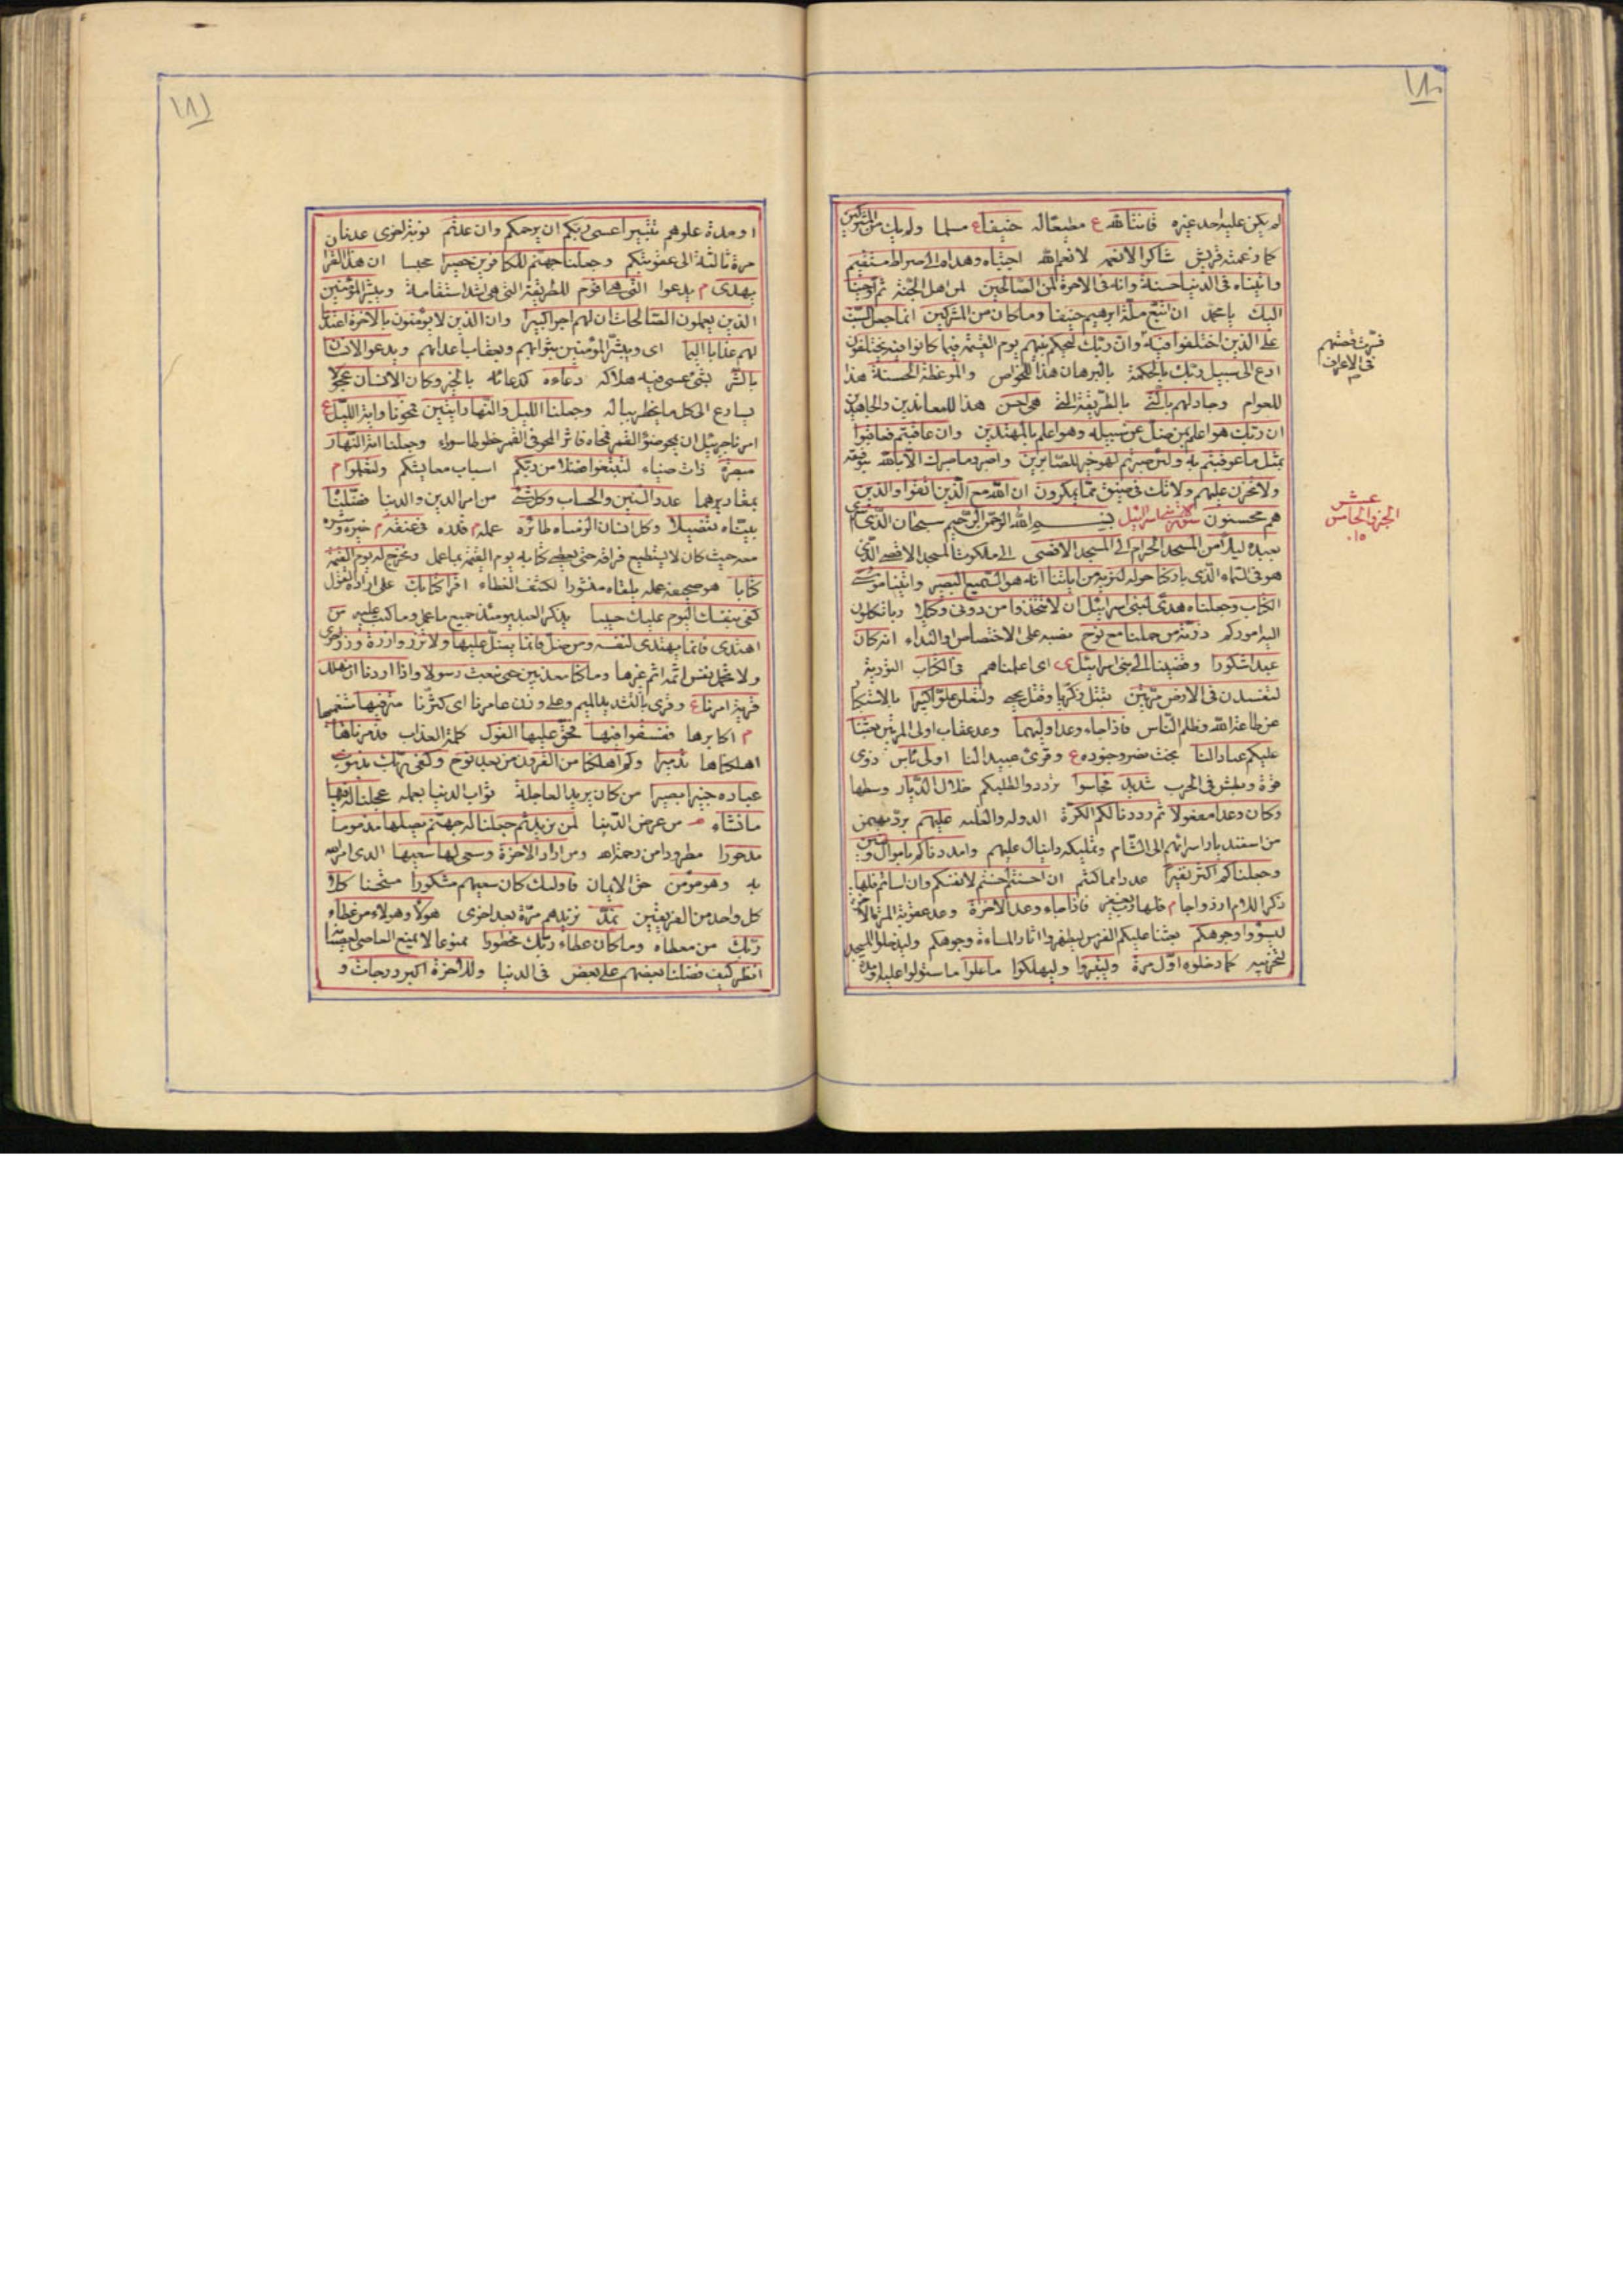 ١٨٠
لم يكن عليه احد غيره قانتا لله ع مطيعا له حنيفا ع مسلما ولم يك من المشركين
كما زعمته قريش شاكرا لانعمه لانعم الله اجتباه وهداه الى صراط مستقيم
واتيناه فى الدنيا حسنة وانه فى الاخرة لمن الصالحين لمن اهل الجنة ثم اوحينا
اليك يا محمد ان اتبع ملة ابرهيم حنيفا وما كان من المشركين انما جعل السبت
على الذين اختلفوا فيه وان ربك ليحكم بينهم يوم القيمة فيما كانوا فيه يختلفون
ادع الى سبيل ربك بالحكمة بالبرهان هذا للخواص والموعظة الحسنة هذا
للعوام وجادلهم بالتى بالطريقة التى هى احسن هذا للمعاندين والجاهدين
ان ربك هو اعلم بمن ضل عن سبيله وهو اعلم بالمهتدين وان عاقبتم فعاقبوا
بمثل ما عوقبتم به ولئن صبرتم لهو خير للصابرين واصبر وما صبرك الا بالله بتوفيقه
ولا تحزن عليهم ولا تك فى ضيق مما يمكرون ان الله مع الذين اتقوا والذين
هم محسنون سورة بنى اسرائيل بسم الله الرحمن الرحيم سبحان الذى اسرى
بعبده ليلا من المسجد الحرام الى المسجد الاقصى الى ملكوت المسجد الاقصى الذى
هو فى السماء الذى باركنا حوله لنريه من اياتنا انه هو السميع البصير واتينا موسى
الكتاب وجعلناه هدى لبنى اسرائيل ان لا تتخذوا من دونى وكيلا ربا تكلون
اليه اموركم ذرية من حملنا مع نوح نصبه على الاختصاص او النداء انه كان
عبدا شكورا وقضينا الى بنى اسرائيل اى اعلمناهم فى الكتاب التورية
لتفسدن فى الارض مرتين بقتل زكريا وقتل يحيى ولتعلن علوا كبيرا بالاستكبار
عن طاعة الله وظلم الناس فاذا جاء وعد اوليهما وعد عقاب اولى المرتين بعثنا
عليكم عبادا لنا بخت نصر وجنوده ع وقرئ عبيدا لنا اولى باس ذوى
قوة وبطش فى الحرب شديد فجاسوا ترددوا لطلبكم خلال الديار وسطها
وكان وعدا مفعولا ثم رددنا لكم الكرة الدولة والغلبة عليهم برد بهمن
من اسفنديار اسرائهم الى الشام وتمليكه دانيال عليهم وامددناكم باموال وبنين
وجعلناكم اكثر نفيرا عددا مما كنتم ان احسنتم احسنتم لانفسكم وان اساتم فلها
ذكر اللام ازدواجا م فلها فاذا جاء وعد الاخرة وعد عقوبة المرة الاخرة
ليسوؤا وجوهكم بعثنا عليكم الفرس ليظهروا اثار المساءة وجوهكم وليدخلوا المسجد
لتخريبه كما دخلوه اول مرة وليتبروا وليهلكوا ما علوا ما ستولوا عليه او مدة
فى الاعراف
عشر
الجزو الخامس
١٥
١٨١
او مدة علوهم تتبيرا عسى ربكم ان يرحمكم وان عدتم نوبة اخرى عدنا
مرة ثالثة الى عقوبتكم وجعلنا جهنم للكافرين حصيرا محبسا ان هذا القران
يهدى م يدعوا للتى هى اقوم للطريقة التى هى اشد استقامة ويبشر المؤمنين
الذين يعملون الصالحات ان لهم اجرا كبيرا وان الذين لا يؤمنون بالاخرة اعتدنا
لهم عذابا اليما اى ويبشر المؤمنين بثوابهم وبعقاب اعدائهم ويدعو الانسان
بالشر بشئ عسى فيه هلاكه دعاءه كدعائه بالخير وكان الانسان عجولا
يسارع الى كل ما يخطر بباله وجعلنا الليل والنهار ايتين فمحونا اية الليل ع
امرنا جبرئيل ان يمحو ضوء القمر فمحاه فاثر المحو فى القمر خطوطا سوداء وجعلنا اية النهار
مبصرة ذات ضياء لتبتغوا فضلا من ربكم اسباب معايشكم ولتعلموا م
بمقاديرهما عدد السنين والحساب وكل شئ من امر الدين والدنيا فصلناه
بيناه تفصيلا وكل انسان الزمناه طائره عمله م قلده فى عنقه م خيره وشره
معه حيث كان لا يستطيع فراقه حتى يعطى كتابه يوم القيمة بما عمل ونخرج له يوم القيمة
كتابا هو صحيفة عمله يلقاه منشورا لكشف الغطاء اقرا كتابك على ارادة القول
كفى بنفسك اليوم عليك حسيبا يذكر العبد يومئذ جميع ما عمل وما كتب عليه من
اهتدى فانما يهتدى لنفسه ومن ضل فانما يضل عليها ولا تزر وازرة وزر اخرى
ولا تحمل نفس اثمة اثم غيرها وما كنا معذبين حتى نبعث رسولا واذا اردنا ان نهلك
قرية امرنا ع وقرى بالتشديد الميم وعلى وزن عامرنا اى كثرنا مترفيها متنعميها
م اكابرها ففسقوا فيها فحق عليها القول كلمة العذاب فدمرناها
اهلكناها تدميرا وكم اهلكنا من القرون من بعد نوح وكفى بربك بذنوب
عباده خبيرا بصيرا من كان يريد العاجلة ثواب الدنيا بعمله عجلنا له فيها
ما نشاء من عرض الدنيا لمن نريد ثم جعلنا له جهنم يصليها مذموما
مدحورا مطرودا من رحمة الله ومن اراد الاخرة وسعى لها سعيها الذى امر الله
به وهو مؤمن حق الايمان فاولئك كان سعيهم مشكورا مستحسنا كلا
كل واحد من الفريقين نمد نزيدهم مرة بعد اخرى هولاء وهولاء من عطاء
ربك من معطاه وما كان عطاء ربك محظورا ممنوعا لا يمنع العاصى لعصيانه
انظر كيف فضلنا بعضهم على بعض فى الدنيا وللاخرة اكبر درجات و